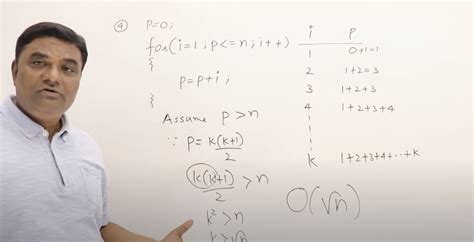 ④ P=0;
for(i=1; p<=n; i++)
{
p=p+i;
}
Assume p>n
∵ p=k(k+1)/2
k(k+1)/2 > n
k²>n
k>√n
i P
1 0+1=1
2 1+2=3
3 1+2+3
4 1+2+3+4
k 1+2+3+4+--+k
O(√n)